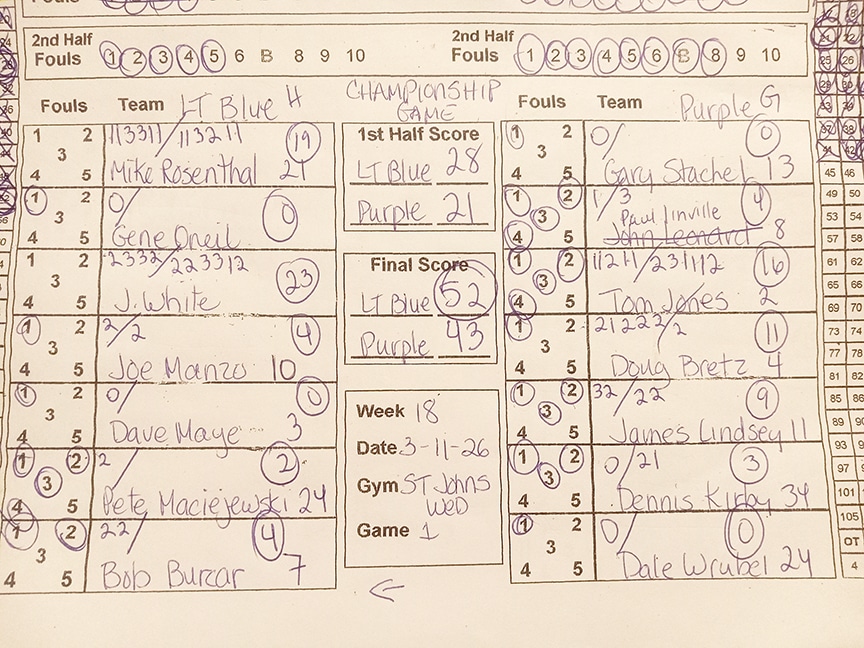 2nd Half Fouls 1 2 3 4 5 6 B 8 9 10
2nd Half Fouls 1 2 3 4 5 6 B 8 9 10
CHAMPIONSHIP GAME
Fouls Team LT Blue H
1 2 3 4 5
113311/113211 19
Mike Rosenthal 21
1 2 3 4 5
0/ 0
Gene Oneil
1 2 3 4 5
2332/223312 23
J. White
1 2 3 4 5
2/2 4
Joe Manzo 10
1 2 3 4 5
0/ 0
Dave Maye 3
1 2 3 4 5
2/ 2
Pete Maciejewski 24
1 2 3 4 5
22/ 4
Bob Burcar 7
1st Half Score
LT Blue 28
Purple 21
Final Score
LT Blue 52
Purple 43
Week 18
Date 3-11-26
Gym ST Johns
WED
Game 1
Fouls Team Purple G
1 2 3 4 5
0/ 0
Gary Stachel 13
1 2 3 4 5
1/3 4
Paul Linville
John Leonard 8
1 2 3 4 5
11211/231112 16
Tom Jones 2
1 2 3 4 5
21222/2 11
Doug Bretz 4
1 2 3 4 5
32/22 9
James Lindsey 11
1 2 3 4 5
0/21 3
Dennis Kirby 34
1 2 3 4 5
0/ 0
Dale Wrubel 24
45 46
49 50
53 54
57 58
61 62
65 66
69 70
73 74
77 78
81 82
85 86
89 90
93
97
101
105
OT
4